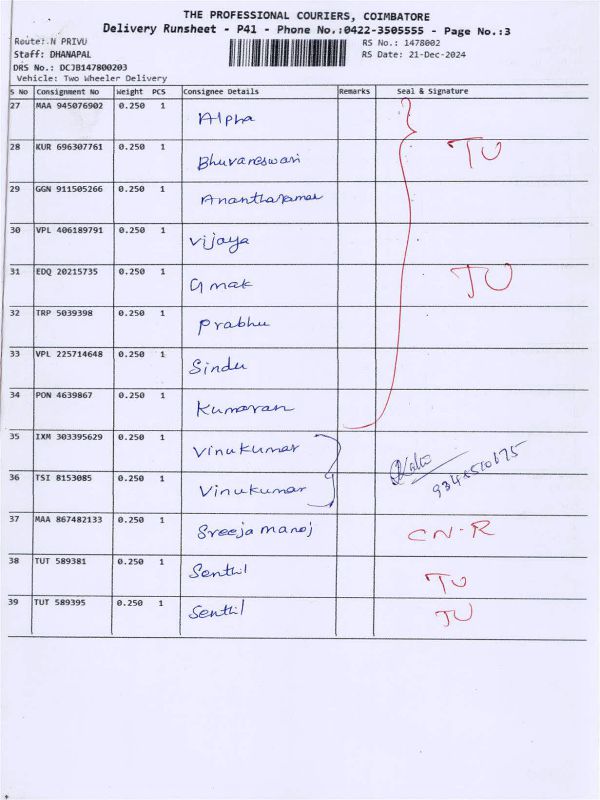 THE PROFESSIONAL COURIERS, COIMBATORE
Delivery Runsheet - P41 - Phone No.:0422-3505555 - Page No.:3
Route: N PRIVU
RS No.: 1478002
Staff: DHANAPAL
RS Date: 21-Dec-2024
DRS No.: DCJB147800203
Vehicle: Two Wheeler Delivery
S No Consignment No Weight PCS Consignee Details Remarks Seal & Signature
27 MAA 945076902 0.250 1 Alpha
28 KUR 696307761 0.250 1 Bhuvaneswari TU
29 GGN 911505266 0.250 1 Anantharaman
30 VPL 406189791 0.250 1 Vijaya
31 EDQ 20215735 0.250 1 Gmak TU
32 TRP 5039398 0.250 1 Prabhu
33 VPL 225714648 0.250 1 Sindu
34 PON 4639867 0.250 1 Kumaran
35 IXM 303395629 0.250 1 Vinukumar
36 TSI 8153085 0.250 1 Vinukumar
37 MAA 867482133 0.250 1 Sreeja manoj CN-R
38 TUT 589381 0.250 1 Senthil TU
39 TUT 589395 0.250 1 Senthil TU